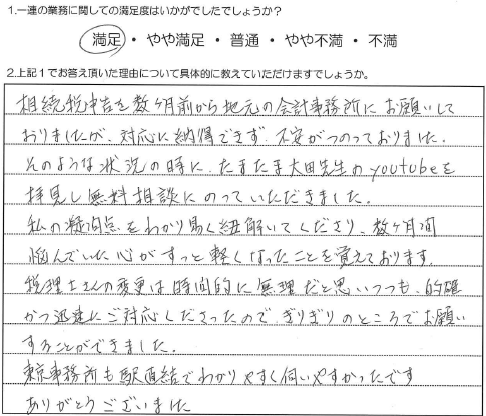 1.一連の業務に関しての満足度はいかがでしたでしょうか？
満足 ・ やや満足 ・ 普通 ・ やや不満 ・ 不満
2.上記1でお答え頂いた理由について具体的に教えていただけますでしょうか。
相続税申告を数ヶ月前から地元の会計事務所にお願いして
おりましたが、対応に納得できず、不安がつのっておりました。
そのような状況の時に、たまたま大田先生のyoutubeを
拝見し無料相談にのっていただきました。
私の疑問点をわかり易く紐解いてくださり、数ヶ月間
悩んでいた心がすっと軽くなったことを覚えております。
税理士さんの変更は時間的に無理だと思いつつも、的確
かつ迅速にご対応くださったので、ぎりぎりのところでお願い
することができました。
東京事務所も駅直結でわかりやすく伺いやすかったです
ありがとうございました